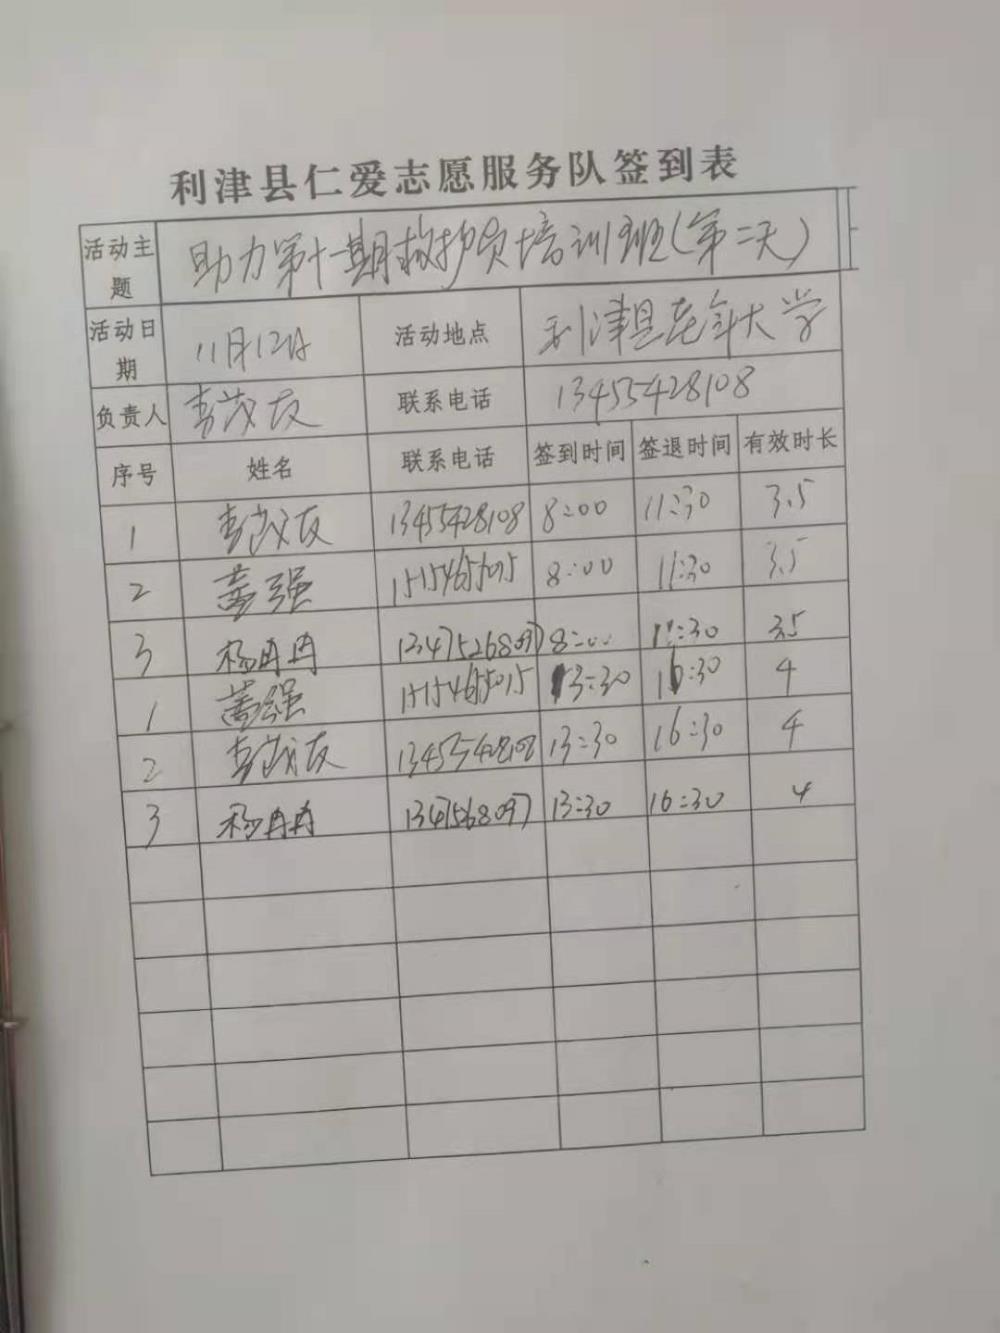 利津县仁爱志愿服务队签到表
活动主题 助力第十一期救护员培训班(第二天)
活动日期 11月12日 活动地点 利津县老年大学
负责人 李茂友 联系电话 13455428108
序号 姓名 联系电话 签到时间 签退时间 有效时长
1 李茂友 13455428108 8:00 11:30 3.5
2 盖强 15154655015 8:00 11:30 3.5
3 杨冉冉 8:00 11:30 3.5
1 盖强 15154655015 13:30 16:30 4
2 李茂友 13455428108 13:30 16:30 4
3 杨冉冉 13:30 16:30 4